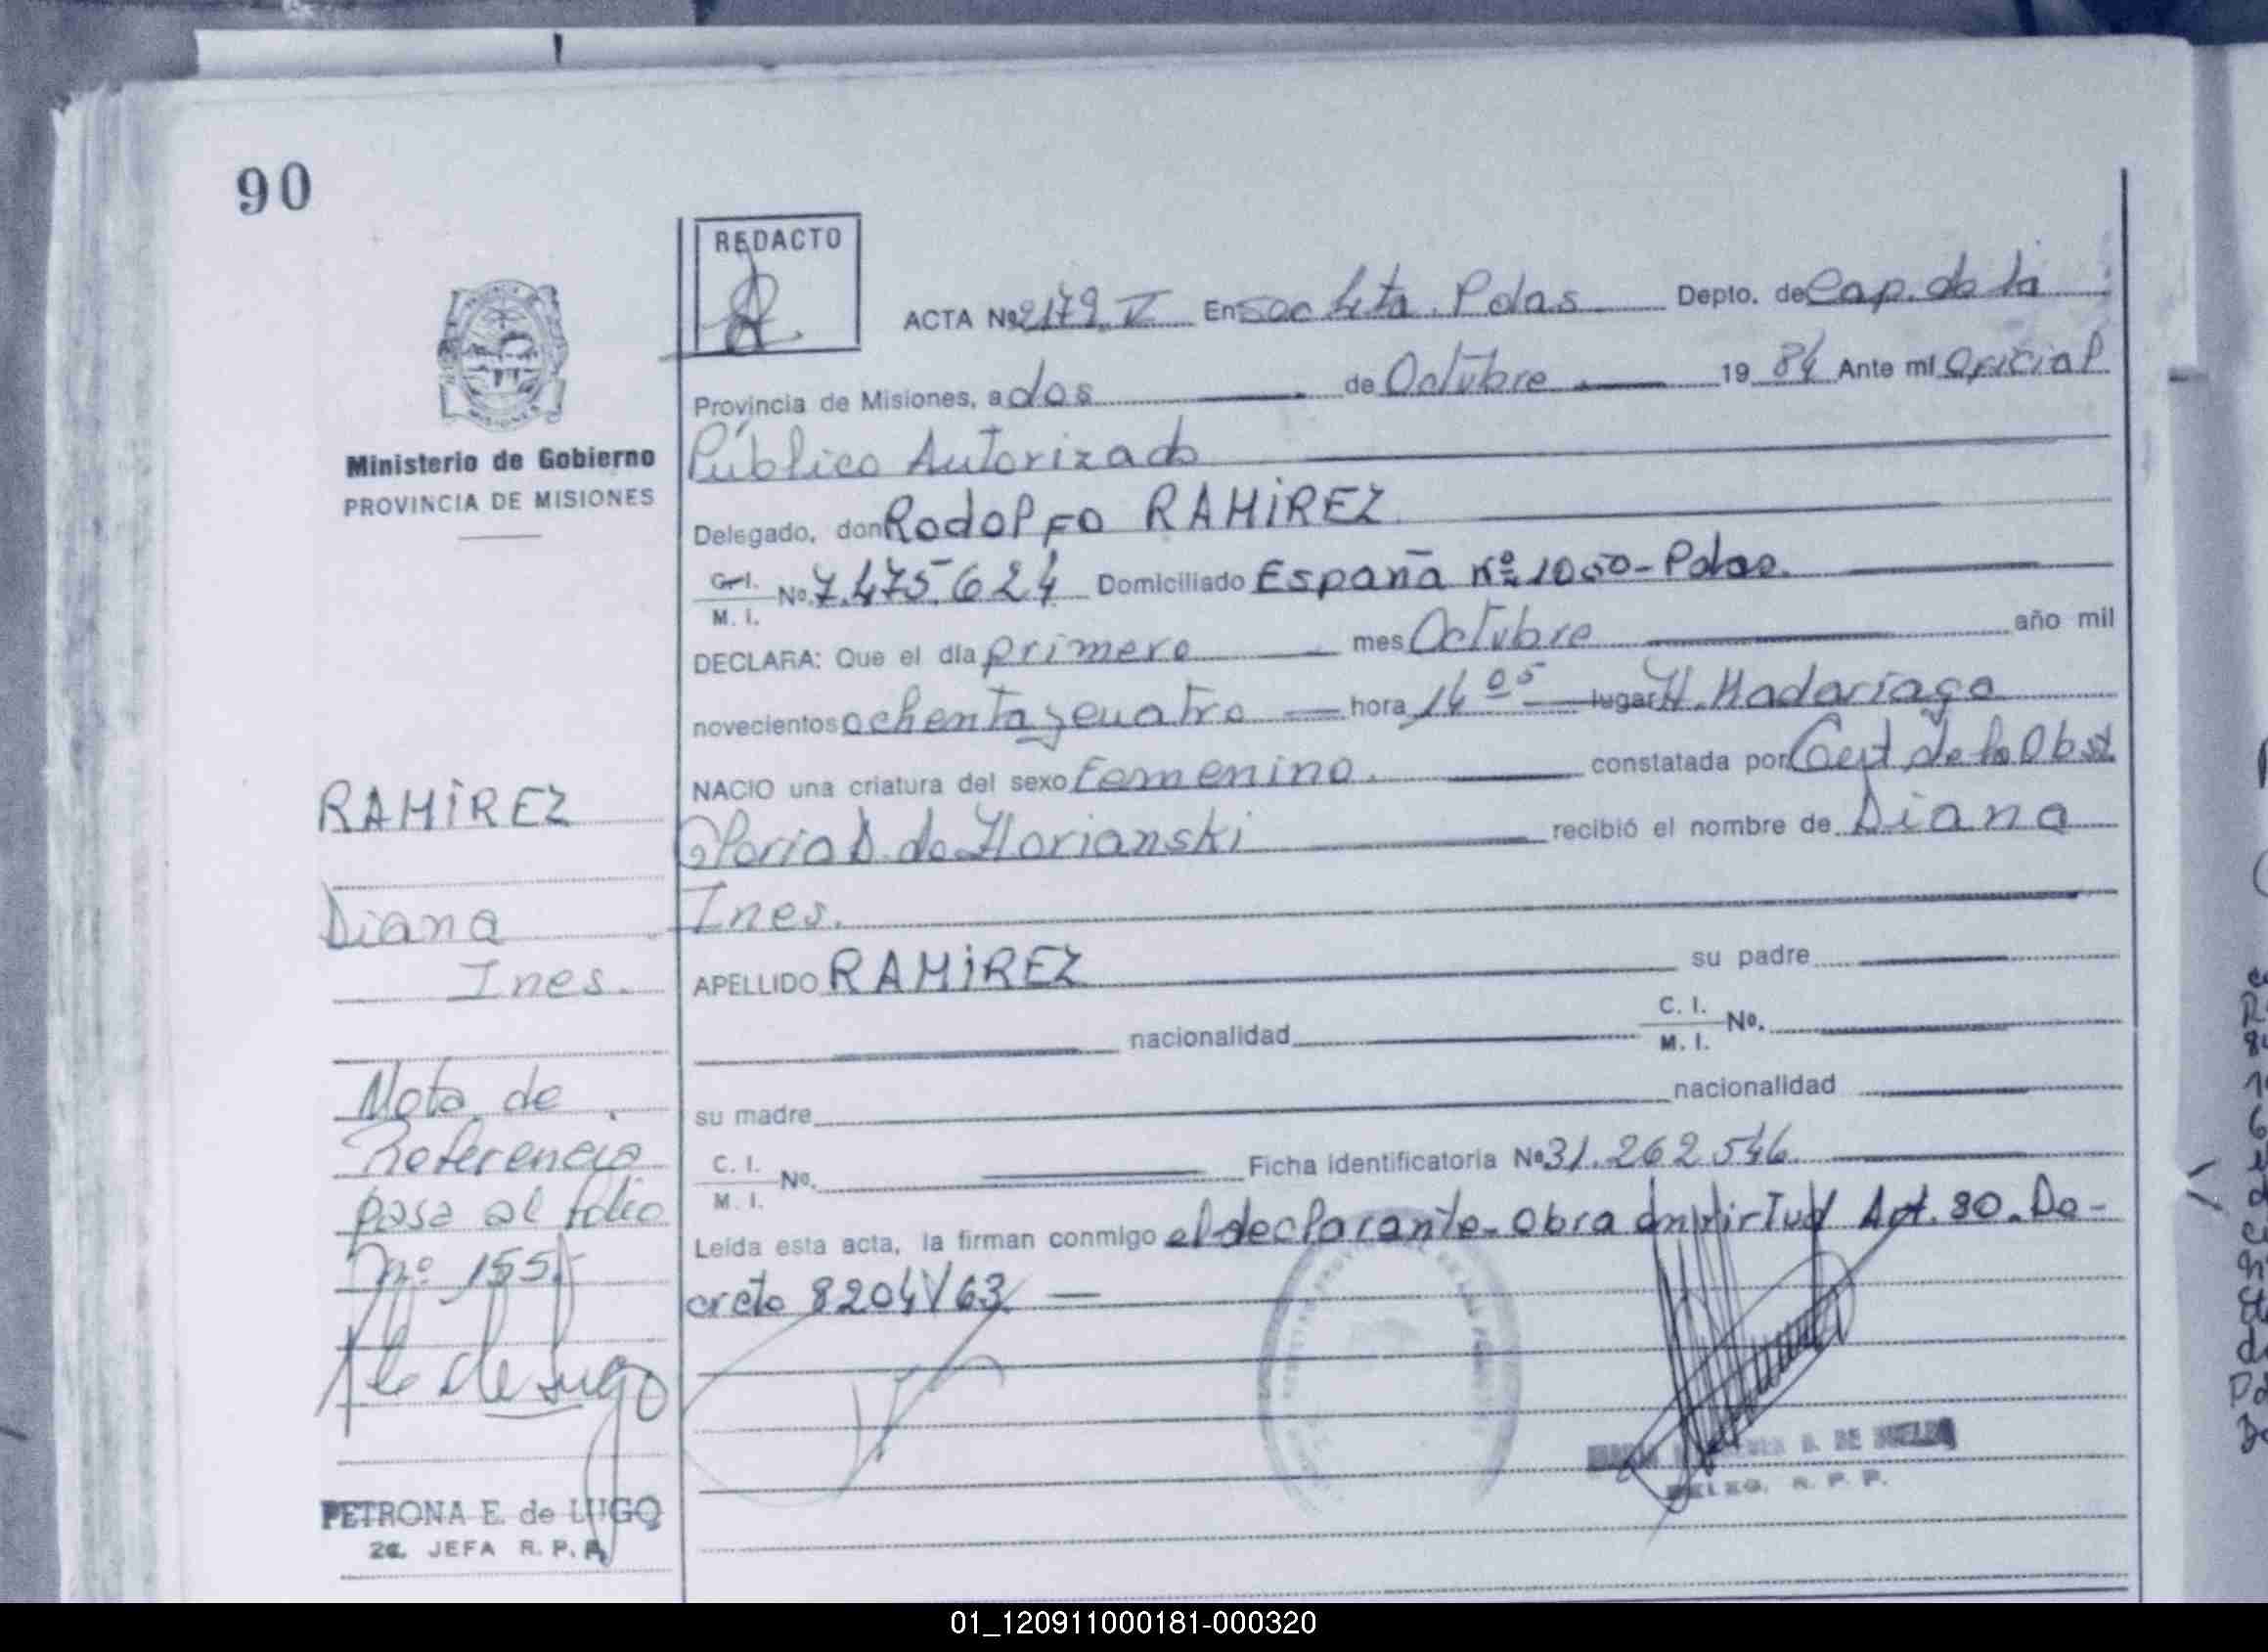 90
REDACTO
ACTA Nº 2179. V En Sec 4ta. Pdas Depto. de Cap. de la
Provincia de Misiones, a dos de Octubre 19 84 Ante mí Oficial
Público Autorizado
Ministerio de Gobierno
PROVINCIA DE MISIONES
Delegado, don Rodolfo RAMIREZ
C. I.
M. I. No. 7.475.624 Domiciliado España Nº 1050 - Pdas.
DECLARA: Que el día primero mes Octubre año mil
novecientos ochenta y cuatro hora 14 05 lugar H. Madariaga
NACIO una criatura del sexo Femenino. constatada por Cert de la Obst
Gloria D. de Florianski recibió el nombre de Diana
Ines.
APELLIDO RAMIREZ su padre
nacionalidad C. I.
M. I. No.
su madre nacionalidad
C. I.
M. I. No. Ficha identificatoria Nº 31.262.546.
Leída esta acta, la firman conmigo el declarante - Obra en virtud Art. 80. De-
creto 8204/63. —
RAMIREZ
Diana
Ines.
Nota de
Referencia
pasa al folio
nº 155
de Lugo
PETRONA E. de LUGO
2a. JEFA R. P. P.
DELEG. R. P. P.
01_120911000181-000320